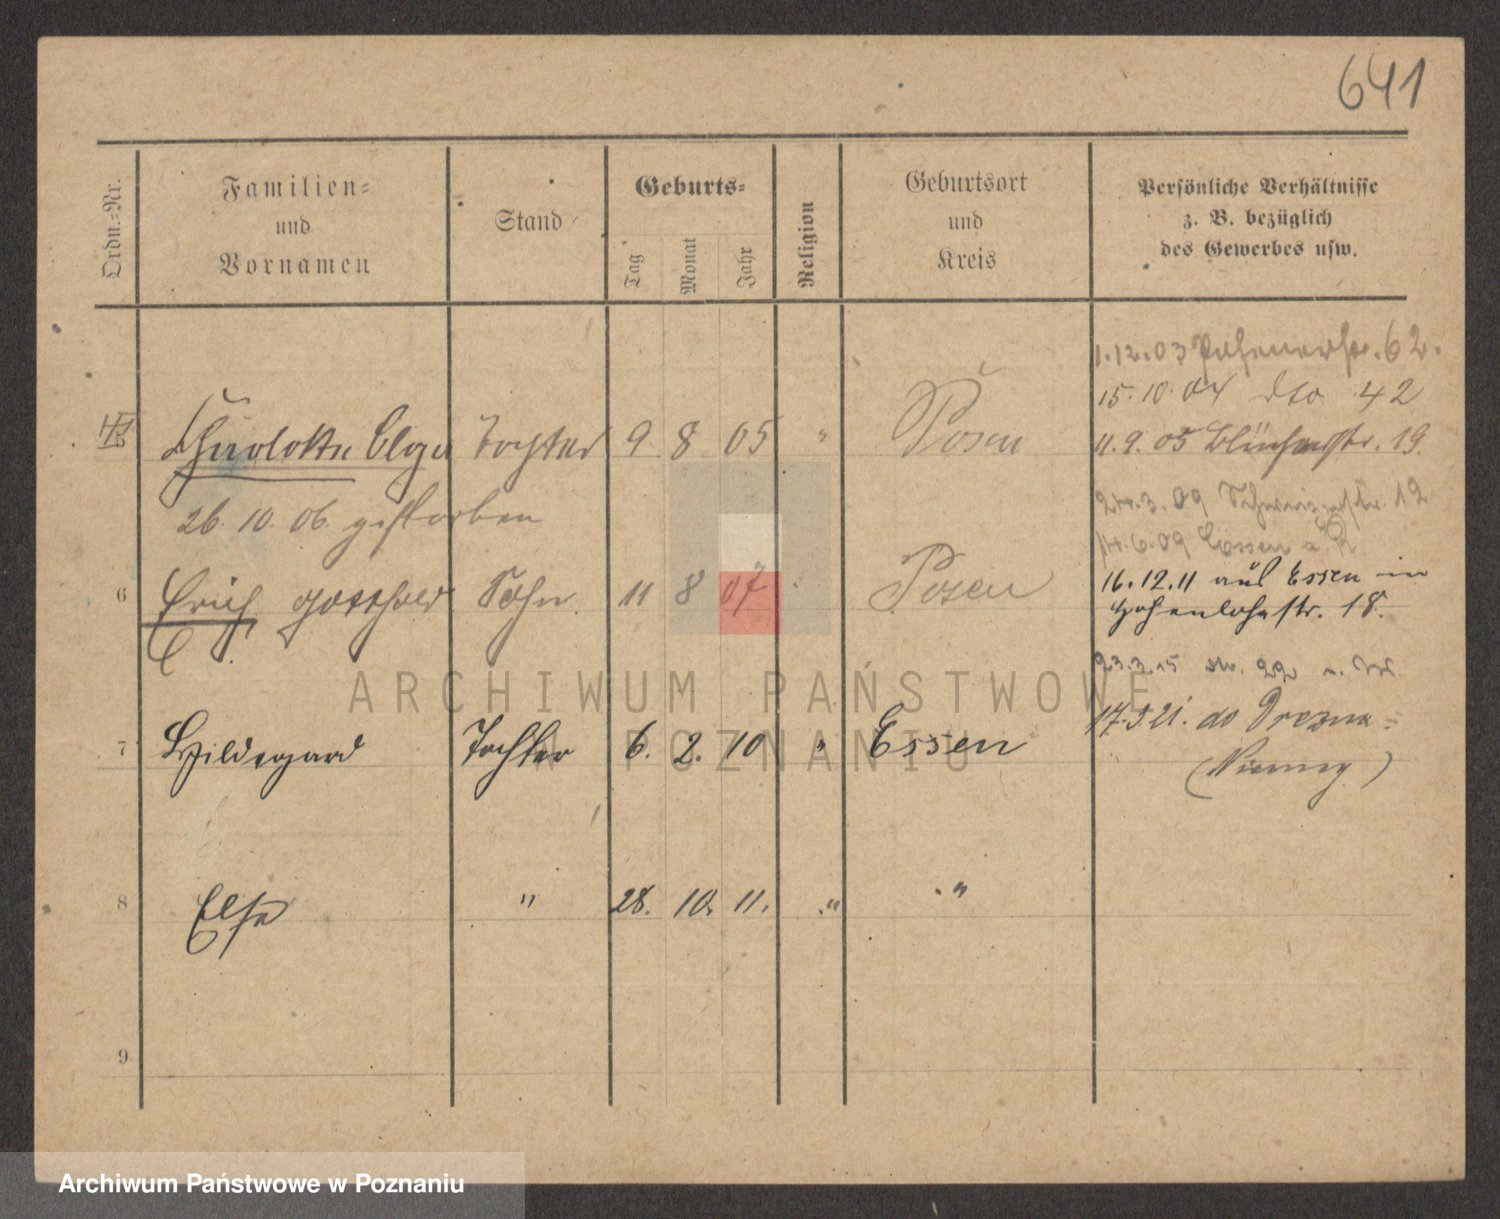 641
Ordn.-Nr.
Familien-
und
Vornamen
Stand
Geburts-
Tag
Monat
Jahr
Religion
Geburtsort
und
Kreis
Persönliche Verhältnisse
z. B. bezüglich
des Gewerbes usw.
1.12.03 Posenerstr. 62.
15.10.04 dto 42
Charlotte Olga Tochter 9 8 05 " Posen
11.9.05 Blücherstr. 19.
26. 10. 06. gestorben
24.3.09 12
14.6.09 Essen a. R
6 Erich Gotthold Sohn 11 8 07 Posen
16.12.11 aus Essen in
Hohenlohestr. 18.
23.3.15
17.5.21. do Drezna
7 Hildegard Tochter 6. 2. 10 " Essen
(Niemcy)
8 Else " 28. 10. 11. " "
9
ARCHIWUM PAŃSTWOWE
W POZNANIU
Archiwum Państwowe w Poznaniu